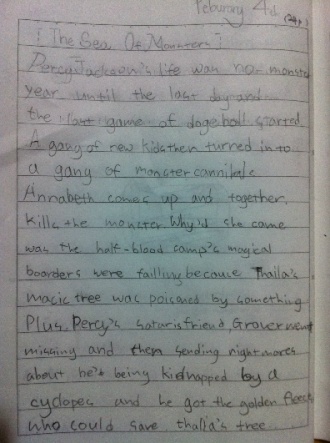 Feburary 4d
[The Sea Of Monsters]
Percy Jackson's life was no-monster
year until the last day and
the last game of dogeball started
A gang of new kids then turned in to
a gang of monster cannibals
Annabeth comes up and together,
kills the monster Why'd she came
was the half-blood camp's magical
boorders were failling because Thalia's
magic tree was poisoned by something
Plus, Percy's friend, Grover went
missing and then sending nightmares
about he's being kidnapped by a
cyclopes and he got the golden fleece
who could save thalia's tree.